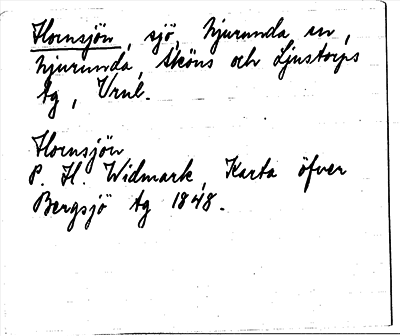 Hornsjön, sjö, Njurunda sn,
Njurunda, Sköns och Ljustorps
tg, Vrnl.
Hornsjön
P. H. Widmark, Karta öfver
Bergsjö tg 1848.